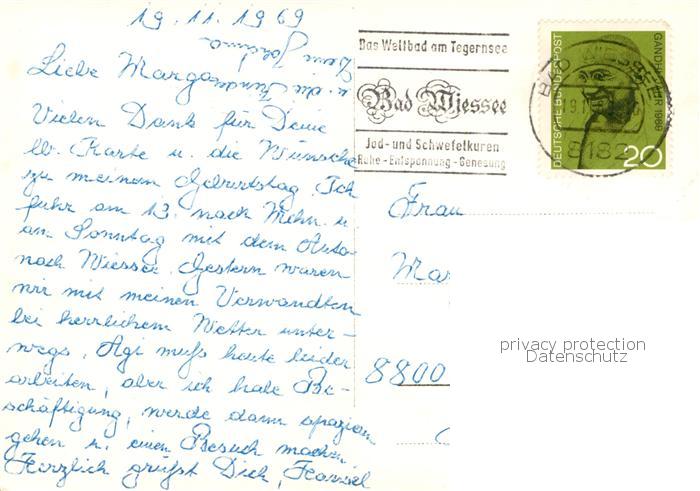 19.11.1969
Liebe Marga
Vielen Dank für Deine
lb. Karte u. die Wünsche
zu meinem Geburtstag. Ich
fuhr am 13. nach Mchn. u.
am Sonntag mit dem Auto
nach Wiessee. Gestern waren
wir mit meinen Verwandten
bei herrlichem Wetter unter-
wegs. Agi muß heute leider
arbeiten, aber ich habe Be-
schäftigung, werde dann spazieren
gehen u. einen Besuch machen.
Herzlich grüßt Dich,
Das Weltbad am Tegernsee
Bad Wiessee
Jod- und Schwefelkuren
Ruhe - Entspannung - Genesung
BAD WIESSEE
8182
DEUTSCHE BUNDESPOST
20
Frau
Mar
8800
privacy protection
Datenschutz